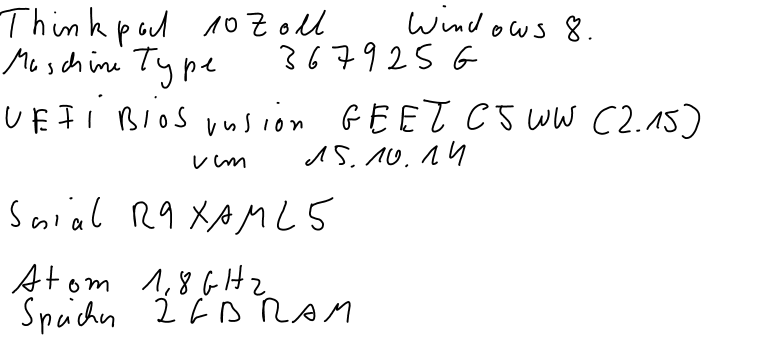 Thinkpad 10 Zoll Windows 8.
Maschine Type 367925G
UEFI BIOS version GEET C5WW (2.15)
vom 15.10.14
Serial R9XAML5
Atom 1,8 GHz
Speicher 2 GB RAM